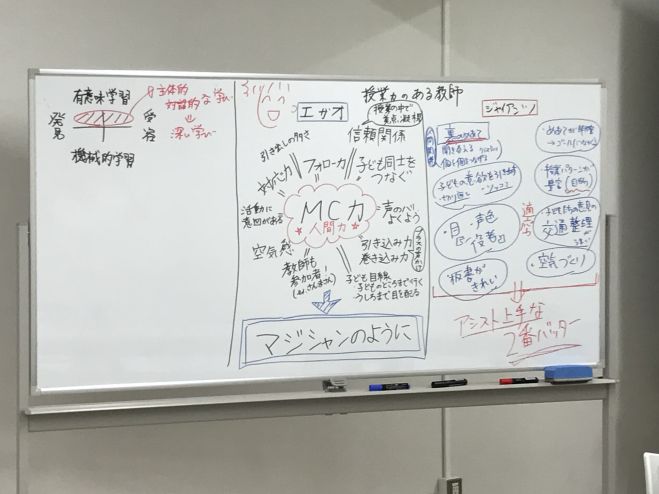 有意味学習
発見
受容
機械的学習
主体的
対話的な学び
深い学び
授業力のある教師
エガオ
授業の中で
信頼関係
引き出しの多さ
対応力
フォロー力
子ども同士を
つなぐ
活動に
意図がある
MC力
人間力
声のハリ
空気感
教師も
参加者!
引き込み力
巻き込み力
子ども目線
子どものところまで行く
うしろまで目を配る
マジシャンのように
ジャイアンツ
裏のめあて
子どもの意欲を引き出す
切り返し
・目・声色
『役者』
板書が
きれい
めあてが明確
→ゴールにつながる
授業パターンが
豊富
子どもたちの意見の
交通整理
・空気づくり
アシスト上手な
2番バッター